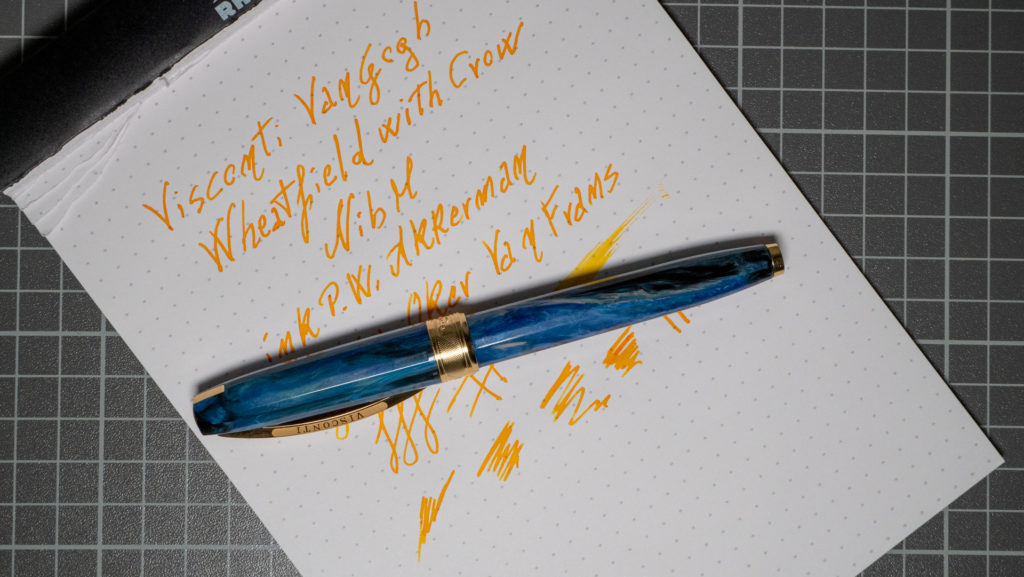 RH
Visconti Van Gogh
Wheatfield with Crow
Nib M
ink P.W. Akkerman
Oker Van Frans
VISCONTI